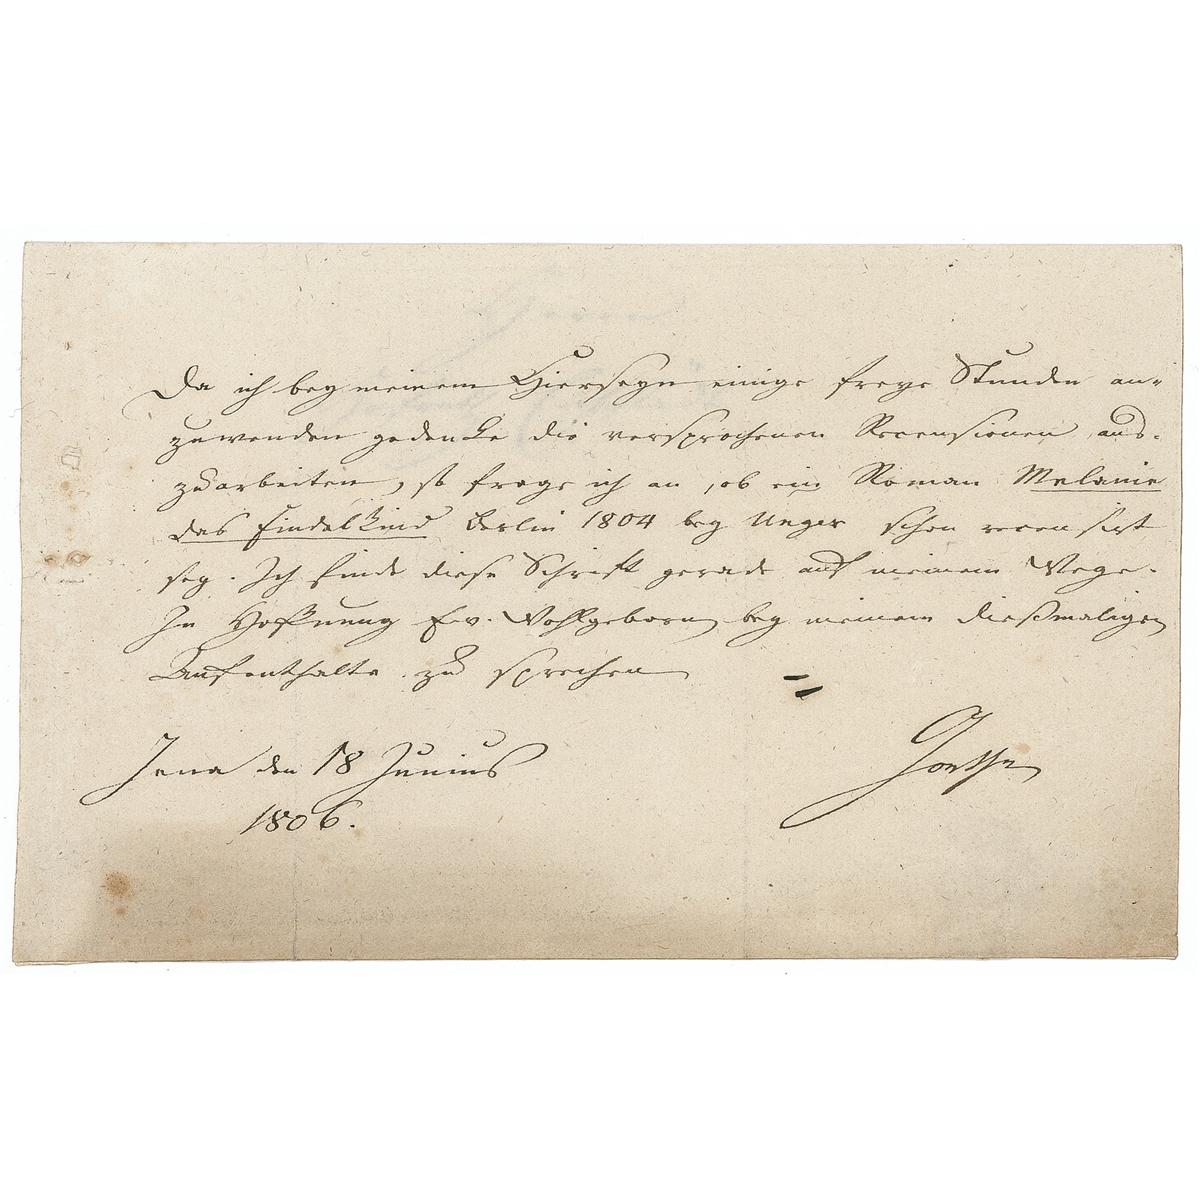 Da ich bey meinem Hierseyn einige freye Stunden an-
zuwenden gedencke die versprochenen Recensionen aus-
zuarbeiten, so frage ich an, ob ein Roman Melanie
das Findelkind Berlin 1804 bey Unger schon recensirt
sey. Ich finde diese Schrift gerade auf meinem Wege.
In Hoffnung Ew. Wohlgeborn bey meinem dießmaligen
Aufenthalte zu sprechen
Jena den 18 Junius
1806.
Goethe